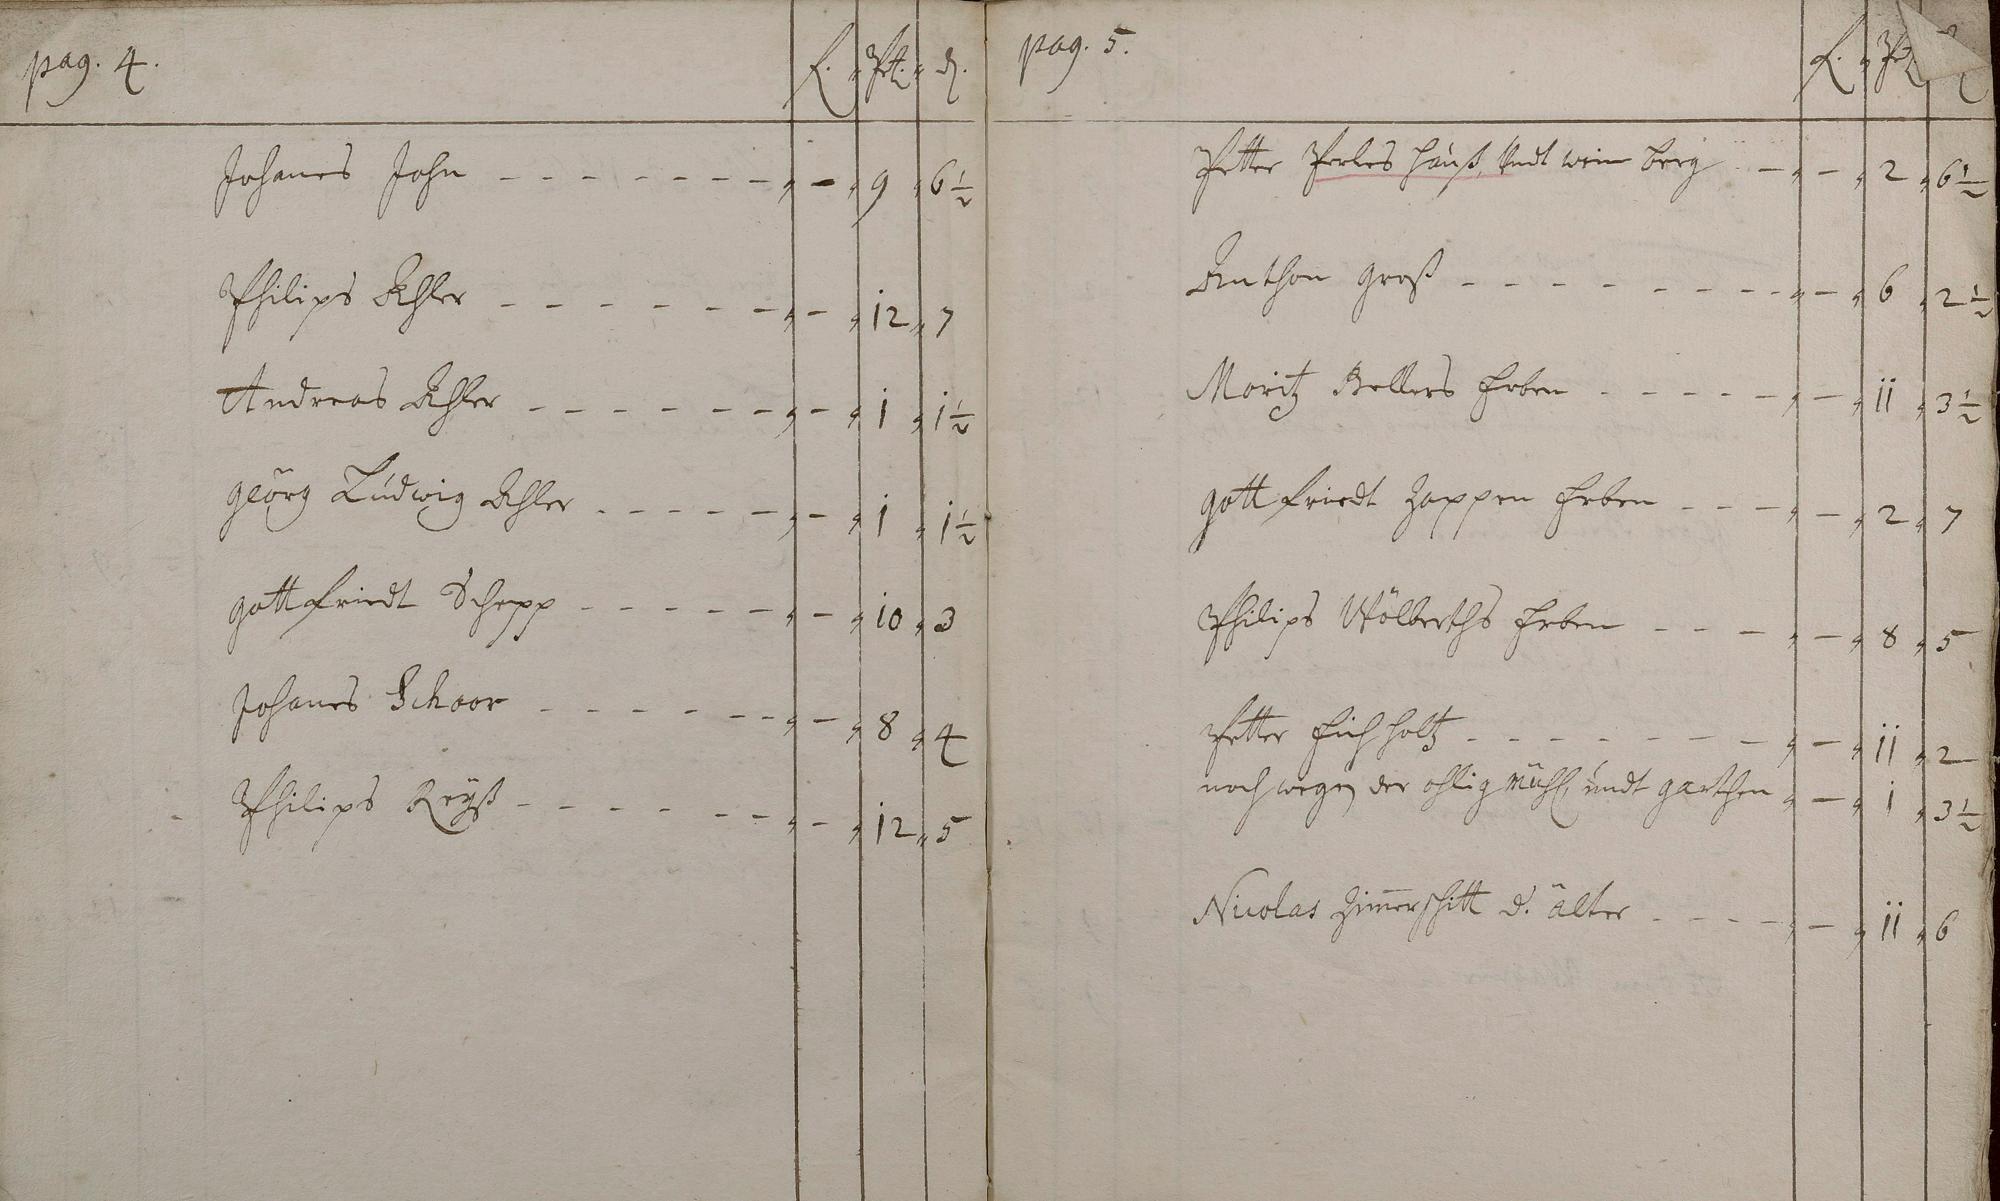 pag. 4. f. Pet. d.
Johanes John - - - - - - - - - 9 6 1/2
Philips Ahler - - - - - - - - 12 7
Andreas Ahler - - - - - - - - 1 1 1/2
Geörg Ludwig Ahler - - - - - - - 1 1 1/2
Gottfriedt Schepp - - - - - - - 10 3
Johanes Schoor - - - - - - - - 8 4
Philips Reÿß - - - - - - - - 12 5
pag. 5. f.
Petter Perles Hauß, undt wein berg - - - 2 6 1/2
Anthon Groß - - - - - - - - - 6 2 1/2
Moritz Bellers Erben - - - - - - 11 3 1/2
Gottfriedt Zappen Erben - - - - 2 7
Philips Wölberths Erben - - - - 8 5
Petter Eichholtz - - - - - - - - 11 2
noch wegen der ohlig Mühl undt garthen - 1 3 1/2
Nicolas Zimerschitt d. älter - - - - - 11 6